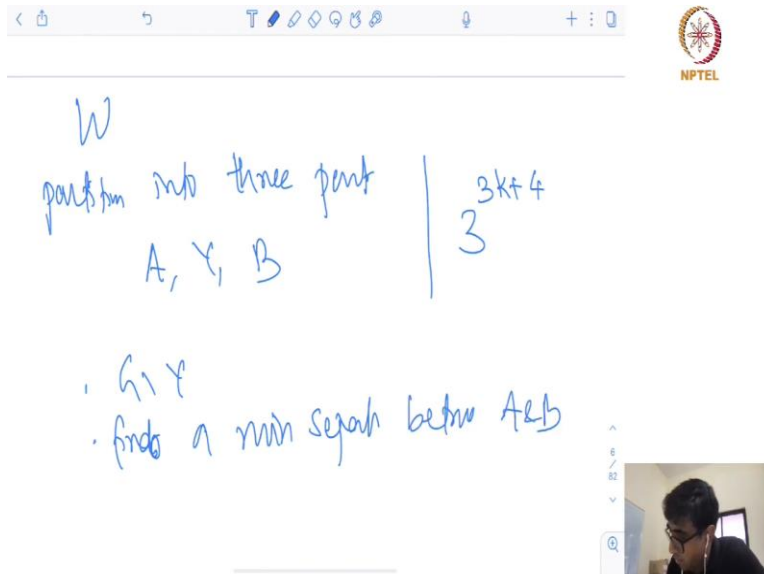 NPTEL
W
partition into three part
3^{3k+4}
A, Y, B
· G \ Y
· finds a min separ betwn A&B
6
/
82